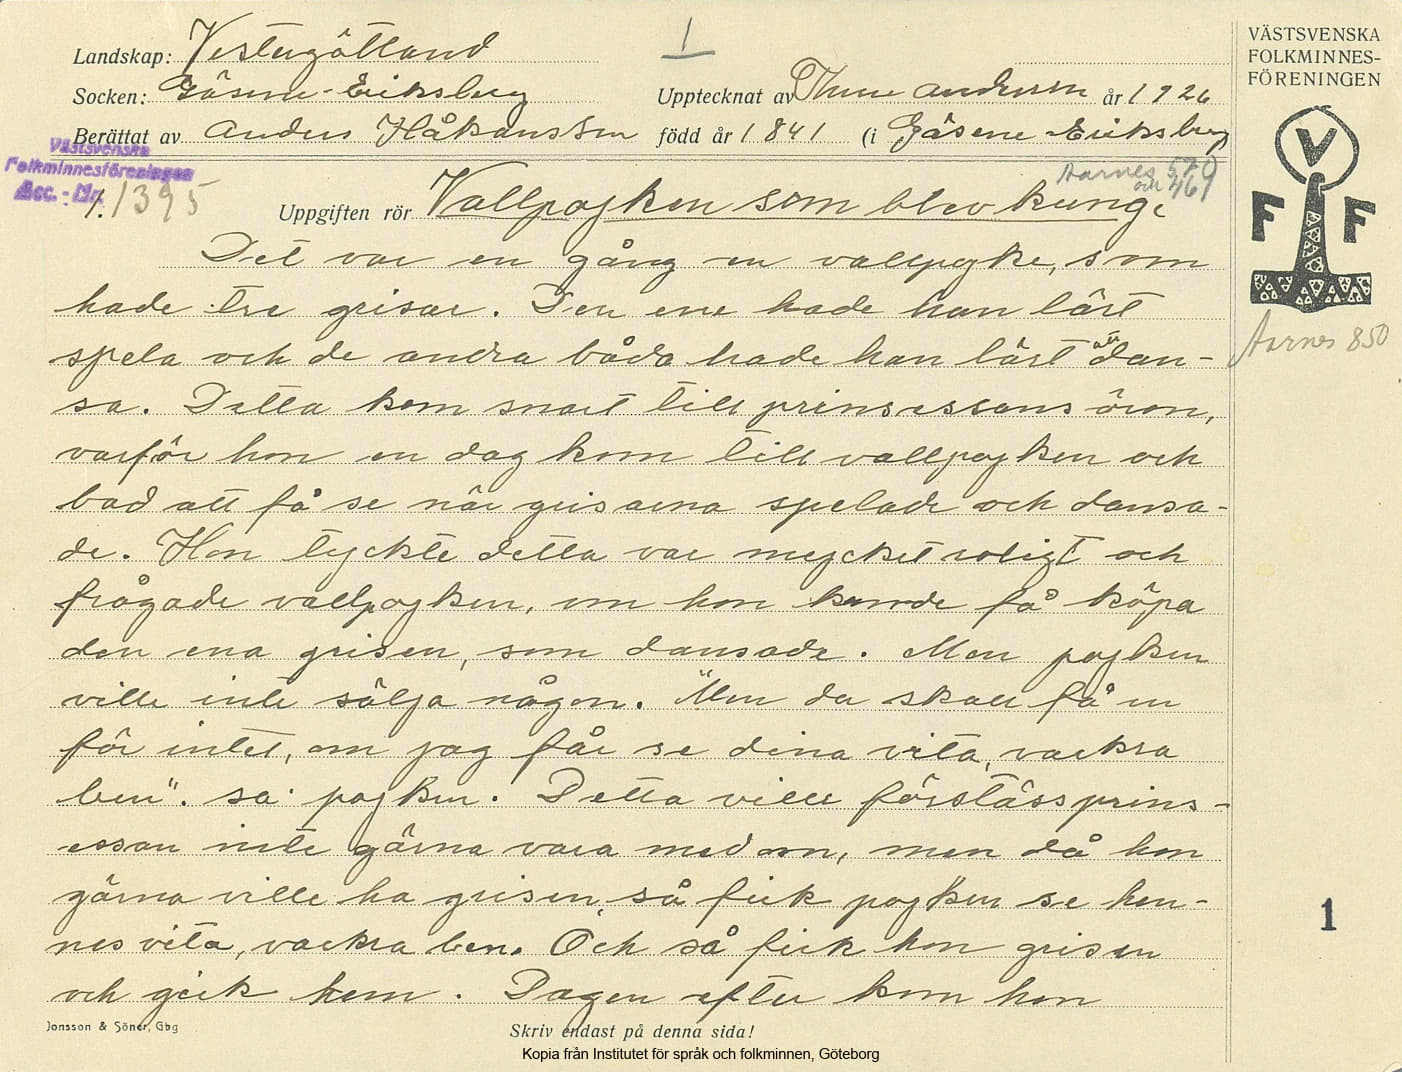 Landskap: Vestergötland
1
Socken: Gäsene-Eriksberg
Upptecknat av Thure Andersson år 1926
Berättat av Anders Håkansson född år 1841 (i Gäsene Eriksberg
VÄSTSVENSKA
FOLKMINNES-
FÖRENINGEN
V
F F
Västsvenska
Folkminnesföreningen
Acc. - Nr. 1395
1.
Aarnes 570
och 461
Uppgiften rör Vallpojken som blev kung.
Det var en gång en vallpojke, som
hade tre grisar. Den ene hade han lärt
spela och de andra båda hade han lärt att dan-
sa. Detta kom snart till prinsessans öron,
varför hon en dag kom till vallpojken och
bad att få se när grisarna spelade och dansa-
de. Hon tyckte detta var mycket roligt och
frågade vallpojken, om hon kunde få köpa
den ena grisen, som dansade. Men pojken
ville inte sälja någon. "Men du skall få en
för intet, om jag får se dina vita, vackra
ben". sa pojken. Detta ville förståss prins-
essan inte gärna vara med om, men då hon
gärna ville ha grisen, så fick pojken se hen-
nes vita, vackra ben. Och så fick hon grisen
och gick hem. Dagen efter kom hon
Aarnes 850
1
Jonsson & Söner, Gbg
Skriv endast på denna sida!
Kopia från Institutet för språk och folkminnen, Göteborg